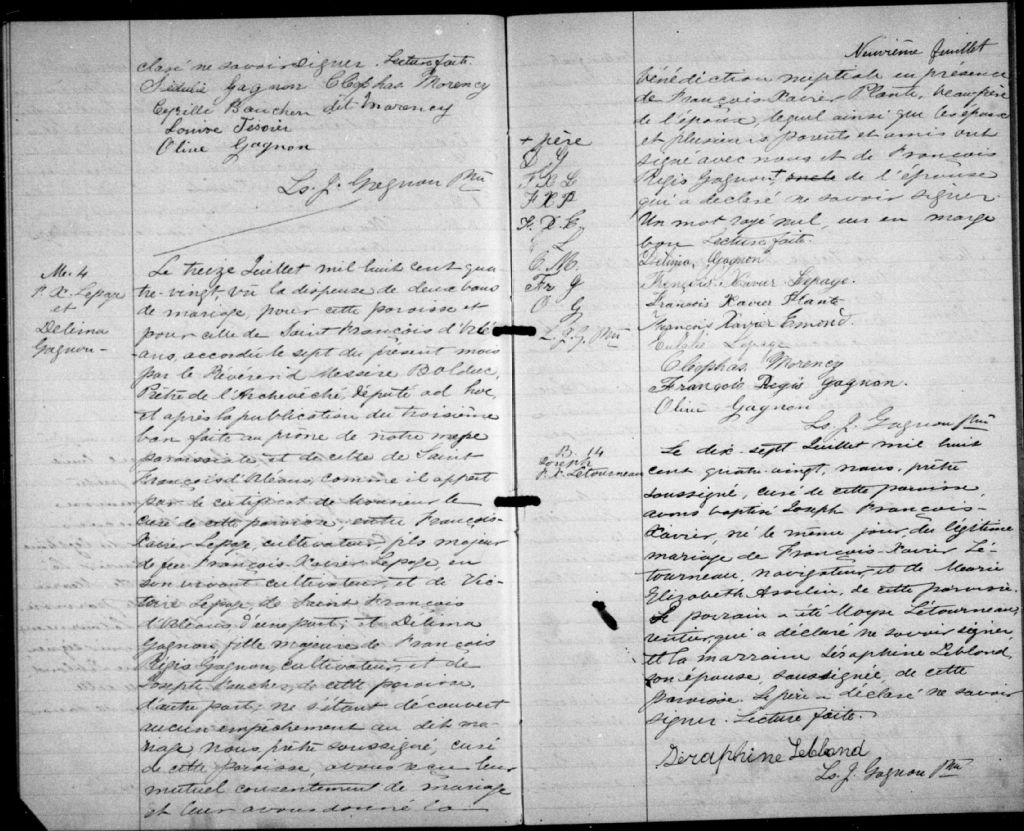 claré ne savoir signer. Lecture faite.
Sédulie Gagnon Cléophas Morency
Cyrille Baucher dit Morency
Louise Tessier
Olive Gagnon
Ls. J. Gagnon Ptre
M. 4
F. X. Lepage
et
Delima
Gagnon
Le treize Juillet mil huit cent qua-
tre-vingt, vû la dispense de deux bans
de mariage, pour cette paroisse et
pour celle de Saint François d'Orlé-
ans, accordée le sept du présent mois
par le Révérend Messire Bolduc,
Prêtre de l'Archevêché, Député ad hoc,
et après la publication du troisième
ban faite au prône de notre messe
paroissiale et de celle de Saint
François d'Orléans, comme il appert
par le certificat de Monsieur le
curé de cette paroisse, entre François-
Xavier Lepage, cultivateur, fils majeur
de feu François-Xavier Lepage, en
son vivant cultivateur, et de Vic-
toire Lepage, de Saint François
d'Orléans d'une part; et Delima
Gagnon, fille majeure de François
Régis Gagnon, cultivateur, et de
Josephte Baucher, de cette paroisse,
d'autre part; ne s'étant découvert
aucun empêchement au dit ma-
riage, nous, prêtre soussigné, curé
de cette paroisse, avons reçu leur
mutuel consentement de mariage
et leur avons donné la
Neuvième feuillet
bénédiction nuptiale en présence
de François-Xavier Plante, beau-père
de l'époux, lequel ainsi que les époux
et plusieurs parents et amis ont
signé avec nous et de François
Régis Gagnon +, oncle de l'épouse
qui a déclaré ne savoir signer.
Un mot rayé nul, un en marge
bon Lecture faite.
+ père
D G
F X L
F. X P
F. X. E.
L
C. M.
Fr G
O G
L. J. G. Ptre
Délima Gagnon
François-Xavier Lepage.
Francois Xavier Plante
François Xavier Emond.
Lepage
Cleophas Morency
François Régis Gagnon.
Olive Gagnon
Ls. J. Gagnon Ptre
B. 14
Joseph
F. X. Létourneau
Le dix-sept Juillet mil huit
cent quatre-vingt, nous, prêtre
soussigné, curé de cette paroisse,
avons baptisé Joseph François-
Xavier, né le même jour du légitime
mariage de François-Xavier Lé-
tourneau, navigateur, et de Marie
Elizabeth Asselin, de cette paroisse.
Le parrain a été Moyse Létourneau,
rentier, qui a déclaré ne savoir signer,
et la marraine Séraphine Leblond,
son épouse, soussignée, de cette
paroisse. Le père a déclaré ne savoir
signer. Lecture faite.
Séraphine Leblond
Ls. J. Gagnon Ptre